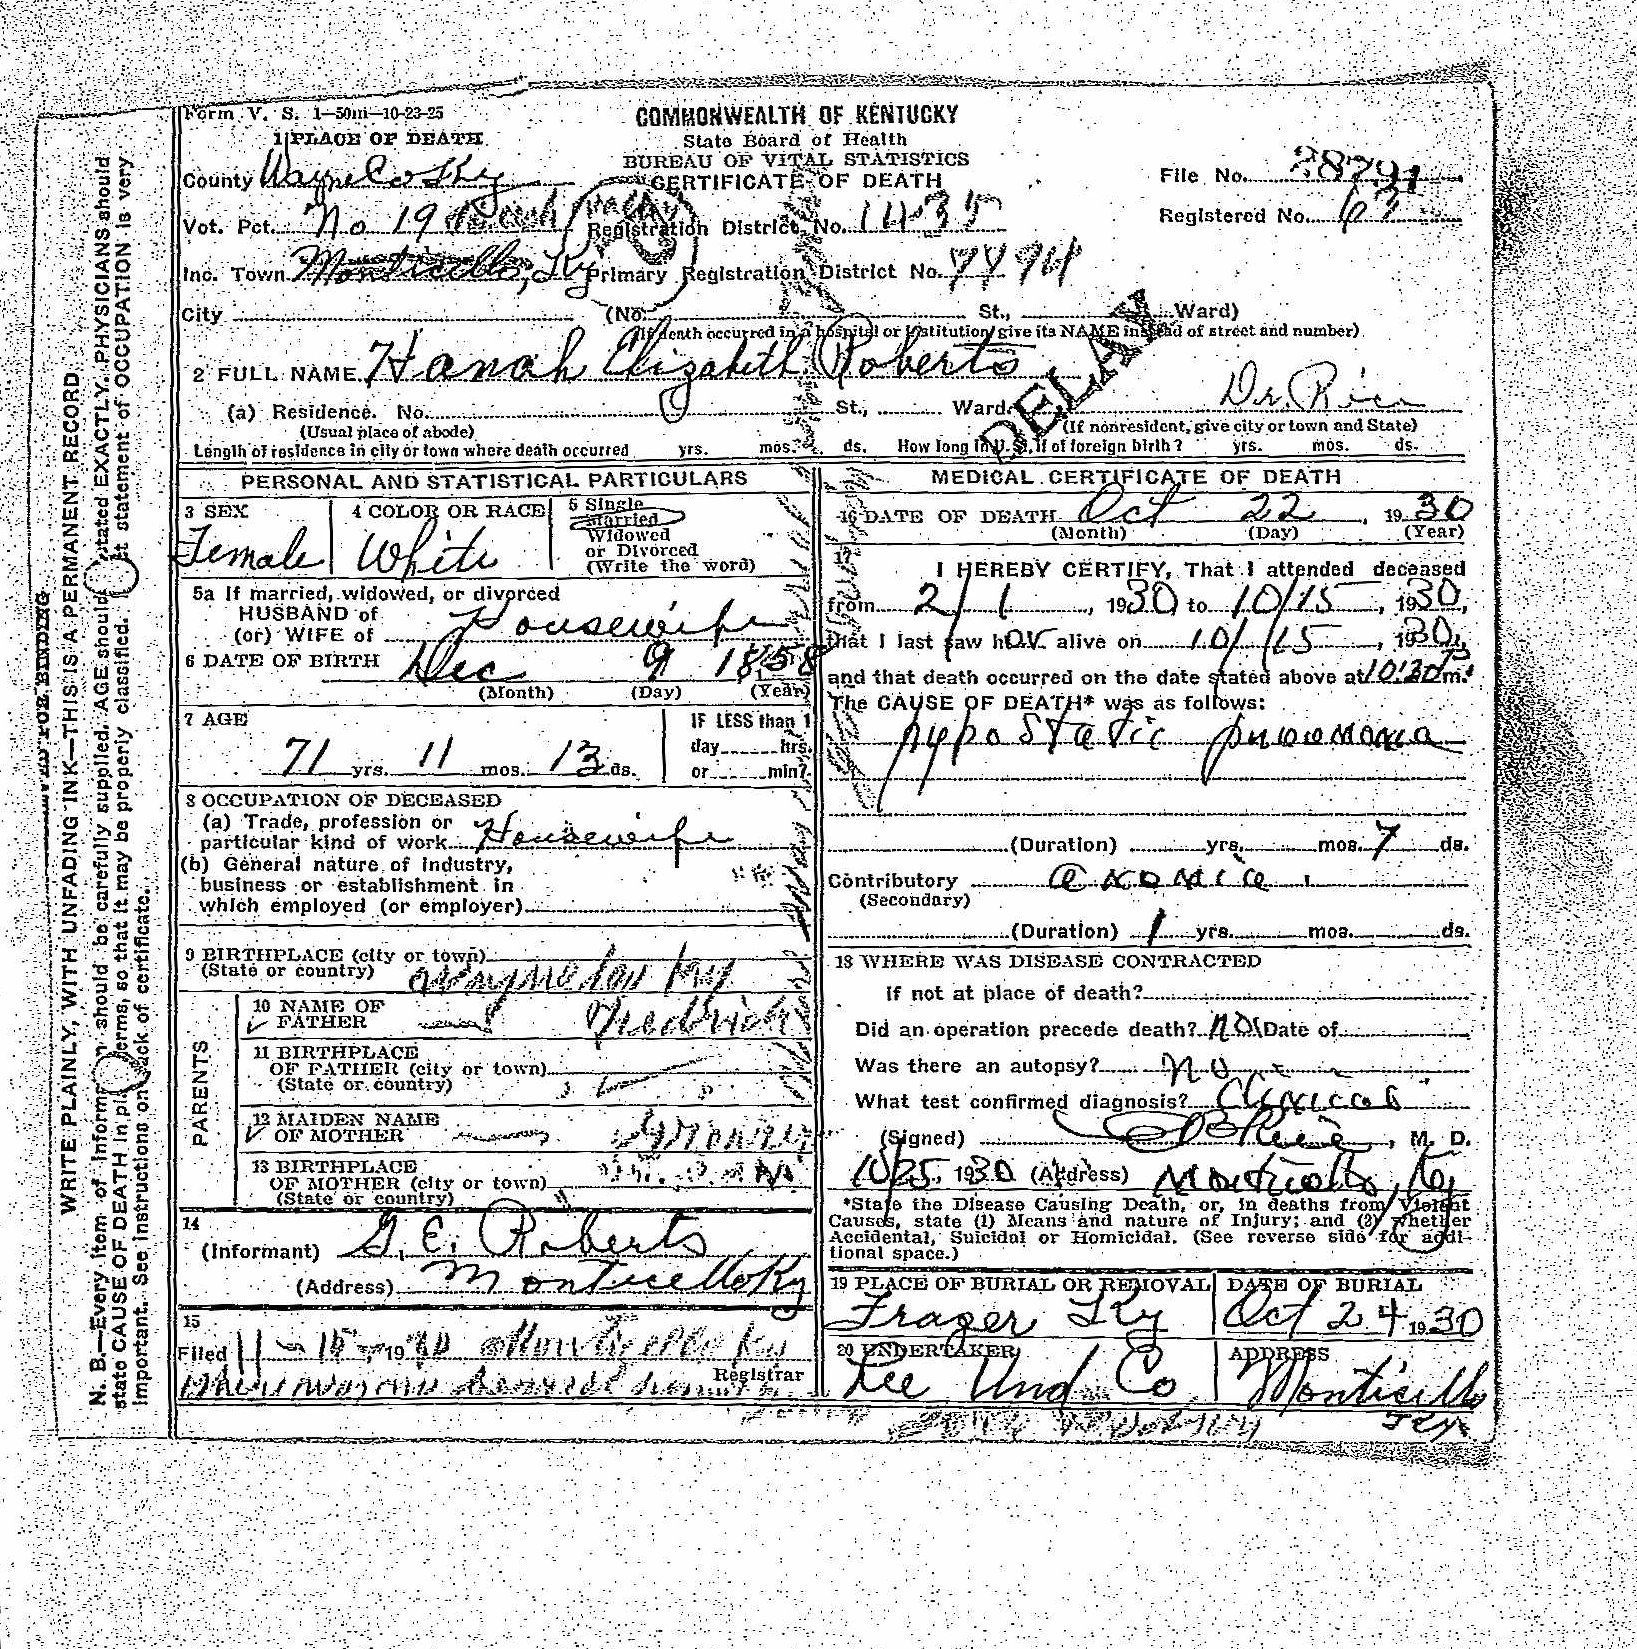 Form V. S. 1—50m—10-23-25
COMMONWEALTH OF KENTUCKY
State Board of Health
BUREAU OF VITAL STATISTICS
CERTIFICATE OF DEATH
1 PLACE OF DEATH
County Wayne Co Ky
File No.
Vot. Pct. No 19
Registration District No. 1435
Registered No.
Inc. Town Monticello, Ky
Primary Registration District No.
City (No. St., Ward)
(If death occurred in a hospital or institution, give its NAME instead of street and number)
DELAY
2 FULL NAME Hanah Elizabeth Roberts
Dr. Rice
(a) Residence. No. St., Ward.
(Usual place of abode) (If nonresident, give city or town and State)
Length of residence in city or town where death occurred yrs. mos. ds. How long in U. S., if of foreign birth? yrs. mos. ds.
PERSONAL AND STATISTICAL PARTICULARS
3 SEX Female
4 COLOR OR RACE White
5 Single
Married
Widowed
or Divorced
(Write the word)
5a If married, widowed, or divorced
HUSBAND of
(or) WIFE of Housewife
6 DATE OF BIRTH Dec 9 1858
(Month) (Day) (Year)
7 AGE
71 yrs. 11 mos. 13 ds.
IF LESS than 1
day hrs.
or min?
8 OCCUPATION OF DECEASED
(a) Trade, profession or
particular kind of work Housewife
(b) General nature of industry,
business or establishment in
which employed (or employer)
9 BIRTHPLACE (city or town)
(State or country)
PARENTS
10 NAME OF
FATHER
11 BIRTHPLACE
OF FATHER (city or town)
(State or country)
12 MAIDEN NAME
OF MOTHER
13 BIRTHPLACE
OF MOTHER (city or town)
(State or country)
14
(Informant) G. E. Roberts
(Address) Monticello Ky
15
Filed 11-15-1930
Registrar
MEDICAL CERTIFICATE OF DEATH
16 DATE OF DEATH Oct 22, 1930
(Month) (Day) (Year)
17
I HEREBY CERTIFY, That I attended deceased
from 2/1, 1930 to 10/15, 1930,
that I last saw her alive on 10/15, 1930,
and that death occurred on the date stated above at 10:30 P m.
The CAUSE OF DEATH* was as follows:
hypostatic pneumonia
(Duration) yrs. mos. 7 ds.
Contributory
(Secondary)
(Duration) 1 yrs. mos. ds.
18 WHERE WAS DISEASE CONTRACTED
If not at place of death?
Did an operation precede death? no Date of
Was there an autopsy? no
What test confirmed diagnosis? Clinical
(Signed) , M. D.
10/25, 1930 (Address) Monticello, Ky
*State the Disease Causing Death, or, in deaths from Violent
Causes, state (1) Means and nature of Injury; and (2) whether
Accidental, Suicidal or Homicidal. (See reverse side for addi-
tional space.)
19 PLACE OF BURIAL OR REMOVAL
Frazer Ky
DATE OF BURIAL
Oct 24 1930
20 UNDERTAKER
Lee Und Co
ADDRESS
Monticello
Ky
WRITE PLAINLY, WITH UNFADING INK—THIS IS A PERMANENT RECORD
N. B.—Every item of information should be carefully supplied. AGE should be stated EXACTLY. PHYSICIANS should
state CAUSE OF DEATH in plain terms, so that it may be properly classified. Exact statement of OCCUPATION is very
important. See instructions on back of certificate.